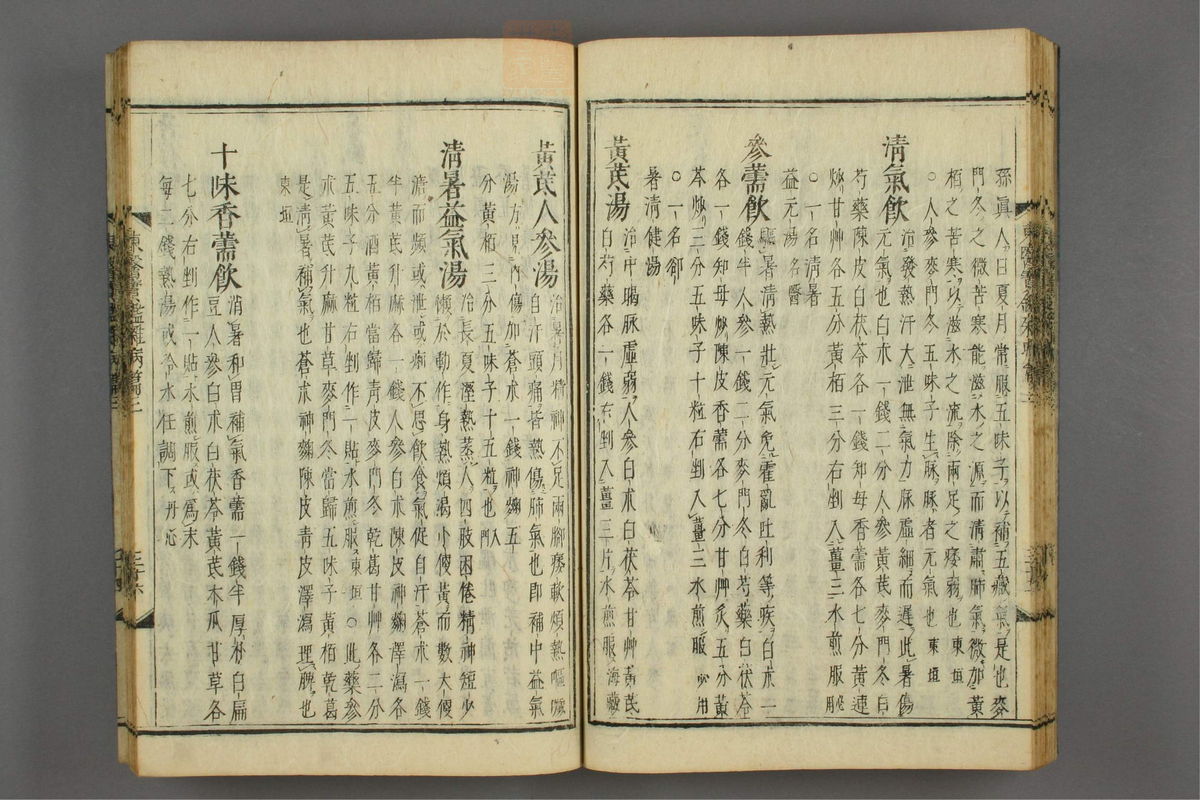 孫眞人曰夏月常服五味子以補五藏氣是也麥
門冬之微苦寒能滋水之源而清肅肺氣微加黃
栢之苦寒以滋水之流除兩足之痿弱也東垣
○人參麥門冬五味子生脉脉者元氣也東垣
清氣飮治發熱汗大泄無氣力脉虛細而遲此暑傷
元氣也白朮一錢二分人參黃芪麥門冬白
芍藥陳皮白茯苓各一錢知母香薷各七分黃連
炒甘艸各五分黃栢三分右剉入薑三水煎服
○一名清暑
益元湯名醫
參薷飮驅暑清熱壯元氣免霍亂吐利等疾白朮一
錢半人參一錢二分麥門冬白芍藥白茯苓
各一錢知母炒陳皮香薷各七分甘艸炙五分黃
芩炒三分五味子十粒右剉入薑三水煎服必用
○一名卻
暑清健湯
黃芪湯治中暍脉虛弱人參白朮白茯苓甘艸黃芪
白芍藥各一錢右剉入薑三片水煎服海藏
黃芪人參湯治暑月精神不足兩脚痿軟煩熱嘔
自汗頭痛皆熱傷肺氣也即補中益氣
湯方見內傷加蒼朮一錢神麴五
分黃栢三分五味子十五粒也入門
清暑益氣湯治長夏溼熱蒸人四肢困倦精神短少
懶於動作身熱煩渴小便黃而數大便
溏而頻或泄或痢不思飮食氣促自汗蒼朮一錢
半黃芪升麻各一錢人參白朮陳皮神麴澤瀉各
五分酒黃栢當歸靑皮麥門冬乾葛甘艸各二分
五味子九粒右剉作一貼水煎服東垣○此藥參
朮黃芪升麻甘草麥門冬當歸五味子黃栢乾葛
是淸暑補氣也蒼朮神麴陳皮靑皮澤瀉理脾也
東垣
十味香薷飮消暑和胃補氣香薷一錢半厚朴白扁
豆人參白朮白茯苓黃芪木瓜甘草各
七分右剉作一貼水煎服或爲末
每二錢熱湯或冷水任調下丹心